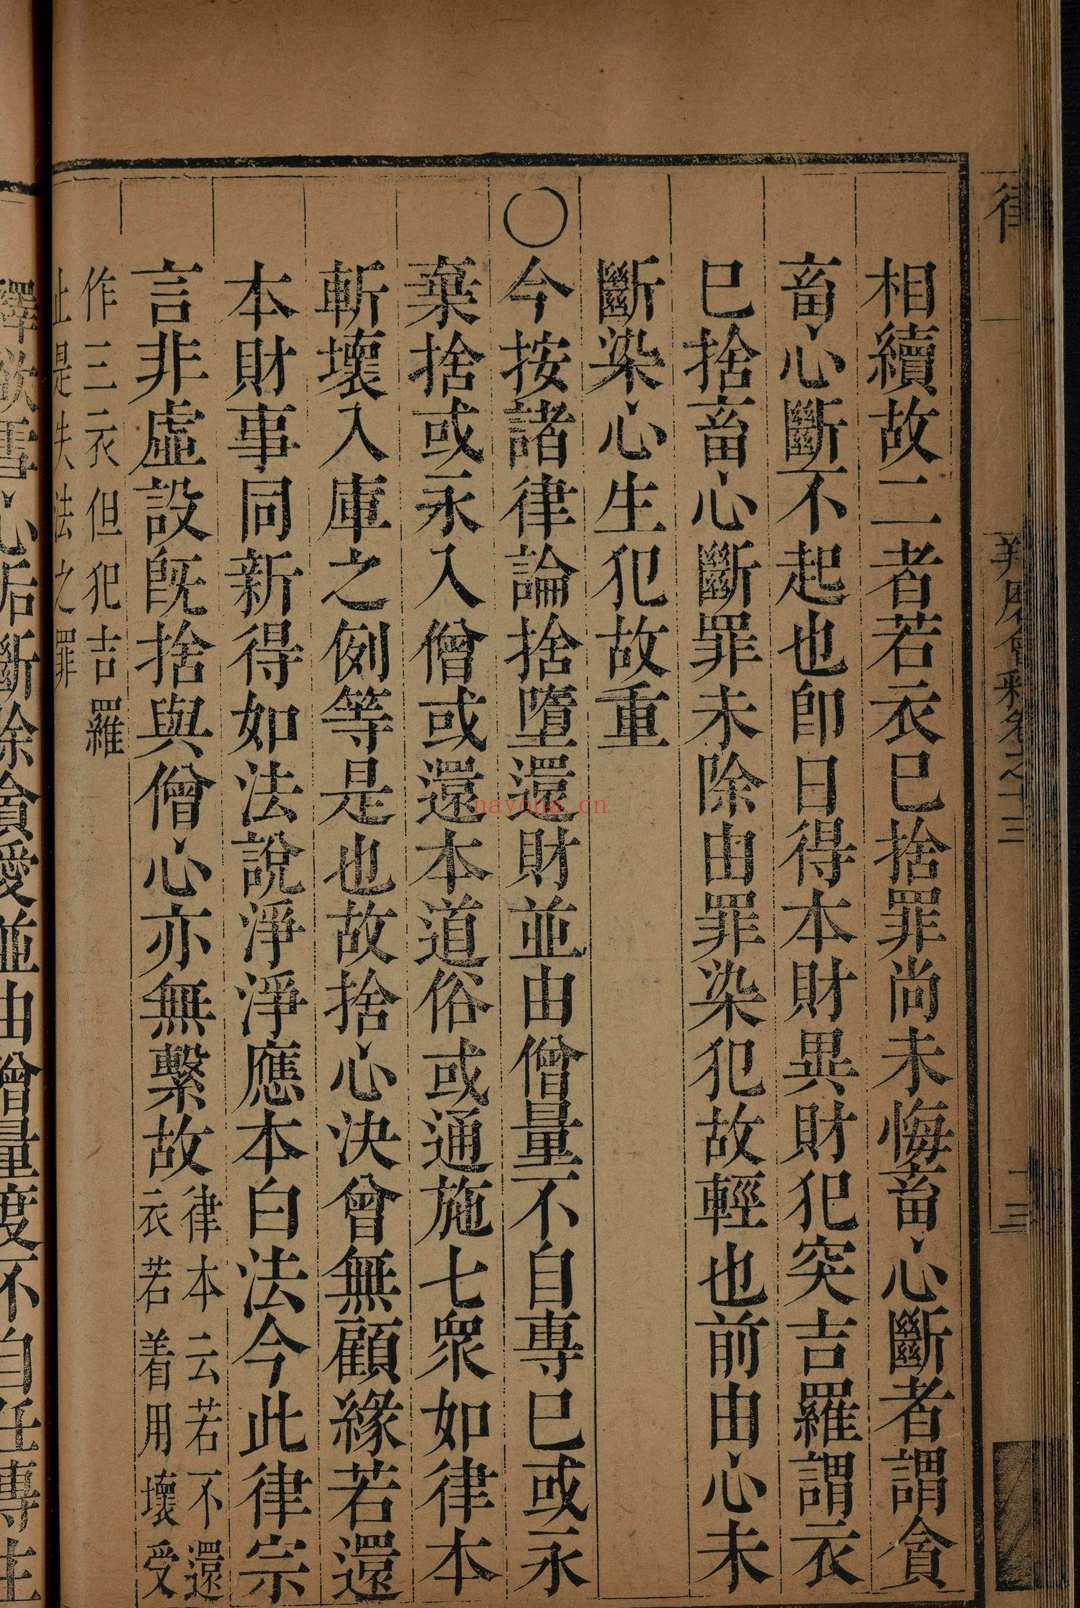 相續故二者若衣已捨罪尚未悔畜心斷者謂貪
畜心斷不起也卽日得本財異財犯突吉羅謂衣
已捨畜心斷罪未除由罪染犯故輕也前由心未
斷染心生犯故重
○今按諸律論捨墮還財並由僧量不自專已或永
棄捨或永入僧或還本道俗或通施七衆如律本
斬壞入庫之例等是也故捨心決曾無顧緣若還
本財事同新得如法說淨淨應本白法今此律宗
言非虛設旣捨與僧心亦無繫故律本云若不還
衣若着用壞受
作三衣但犯吉羅
此是失法之罪
心后斷除貪愛並由僧量度不自任專主
律
羯磨會釋卷之十三
十三
nayona.cn